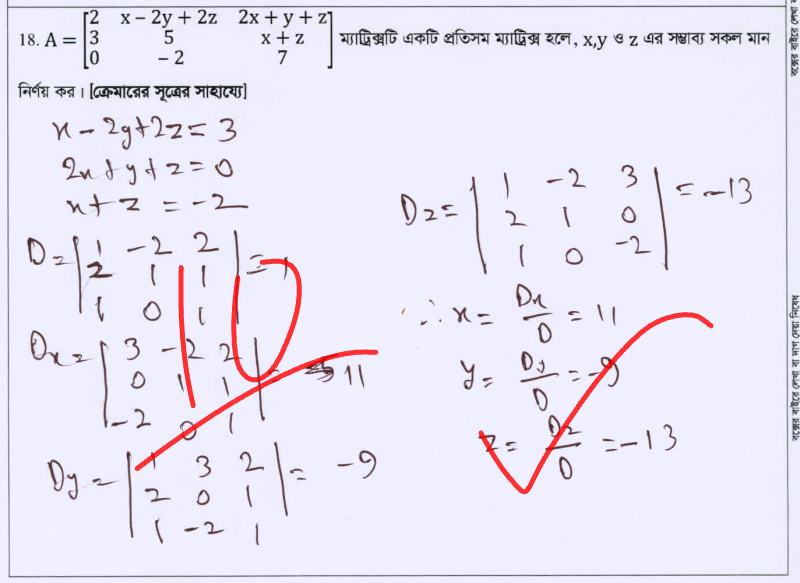 18. A = [2 x − 2y + 2z 2x + y + z
3 5 x + z
0 −2 7] ম্যাট্রিক্সটি একটি প্রতিসম ম্যাট্রিক্স হলে, x,y ও z এর সম্ভাব্য সকল মান
নির্ণয় কর। [ক্রেমারের সূত্রের সাহায্যে]
x − 2y + 2z = 3
2x + y + z = 0
x + z = −2
D = | 1 −2 2
2 1 1
1 0 1 | = 1
Dx = | 3 −2 2
0 1 1
−2 0 1 | = 11
Dy = | 1 3 2
2 0 1
1 −2 1 | = −9
Dz = | 1 −2 3
2 1 0
1 0 −2 | = −13
∴ x = Dx/D = 11
y = Dy/D = −9
z = Dz/D = −13
10
বক্সের বাইরে লেখা বা দাগ দেয়া নিষেধ
বক্সের বাইরে লেখা